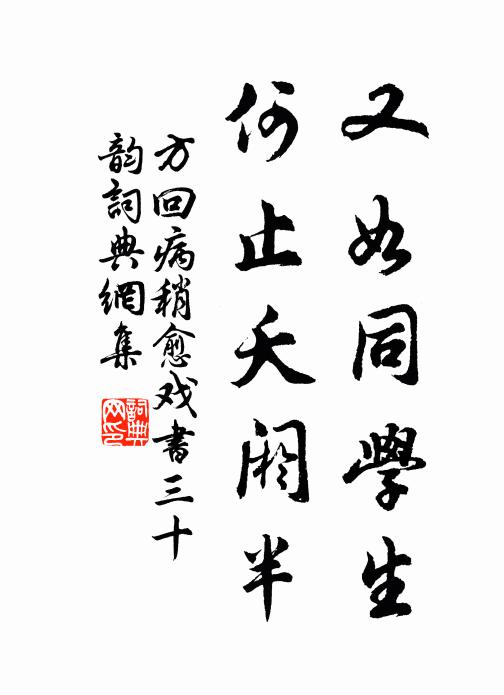 又如同學生
何止夭閼半
方回病稍愈戏書三十
韵詞典網集
詞典
网印